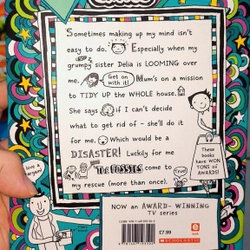 Sometimes making up my mind isn't
easy to do. Especially when my
grumpy sister Delia is LOOMING over
me. Get on with it! Mum's on a mission
to TIDY UP the WHOLE HOUSE.
She says if I can't decide
what to get rid of - she'll do it
for me. Which would be a
DISASTER! Luckily for me
THE FOSSILS come to
my rescue (more than once).
These
books
have
WON
TONS of
AWARDS!
NOW an AWARD-WINNING
TV series
£7.99